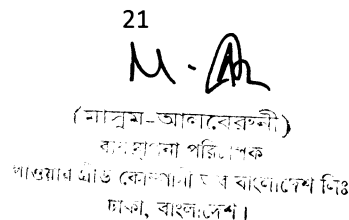 21
(মাসুম-আলবেরুনী)
ব্যবস্থাপনা পরিচালক
পাওয়ার গ্রীড কোম্পানী অব বাংলাদেশ লিঃ
ঢাকা, বাংলাদেশ।